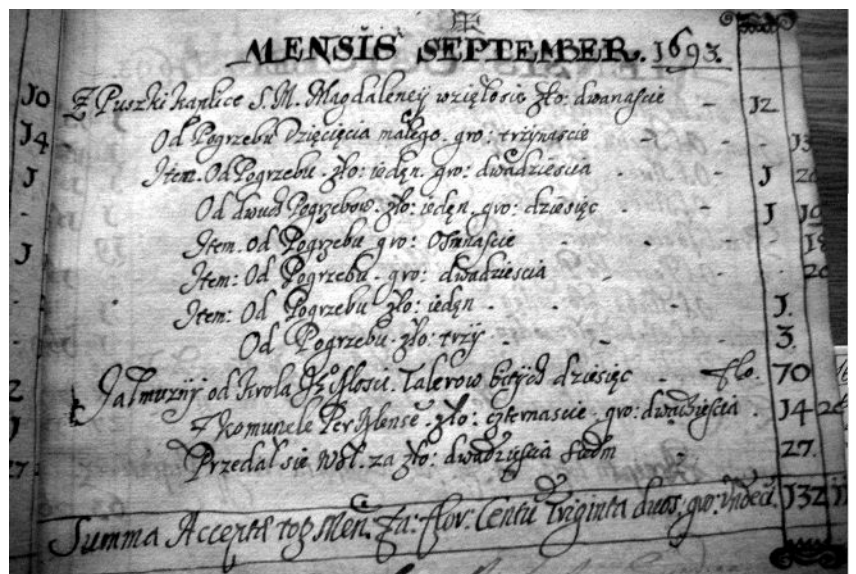 MENSIS SEPTEMBER. 1693.
J0 Z Puszki kaplice S. M. Magdaleney wzięłosie zło: dwanaście - J2
J4 Od Pogrzebu Dzięcięcia małego. gro: trzynaście - - J3
J Item. Od Pogrzebu. zło: ięden. gro: dwadziescia - J 20
- Od dwuch Pogrzebow. zło: ięden. gro: dziesięc - - J J0
J Item. Od Pogrzebu gro: Osmnaście - - - J8
- Item: Od Pogrzebu. gro: dwadziescia - - 20
Item: Od Pogrzebu zło: ięden - - - J.
Od Pogrzebu. zło: trzy - - - 3.
2 Jałmużny od Krola Je° Mosci. Talerow bitych dziesięc - flo. 70
Z komunele Per Mense. zło: czternascie. gro: dwadziescia . J4 20
27. Przedał sie Woł. za zło: dwadziescia siedm 27.
Summa Accepta Men. fa: flor: Centu Triginta duos. gro: Undeci. J32 JJ